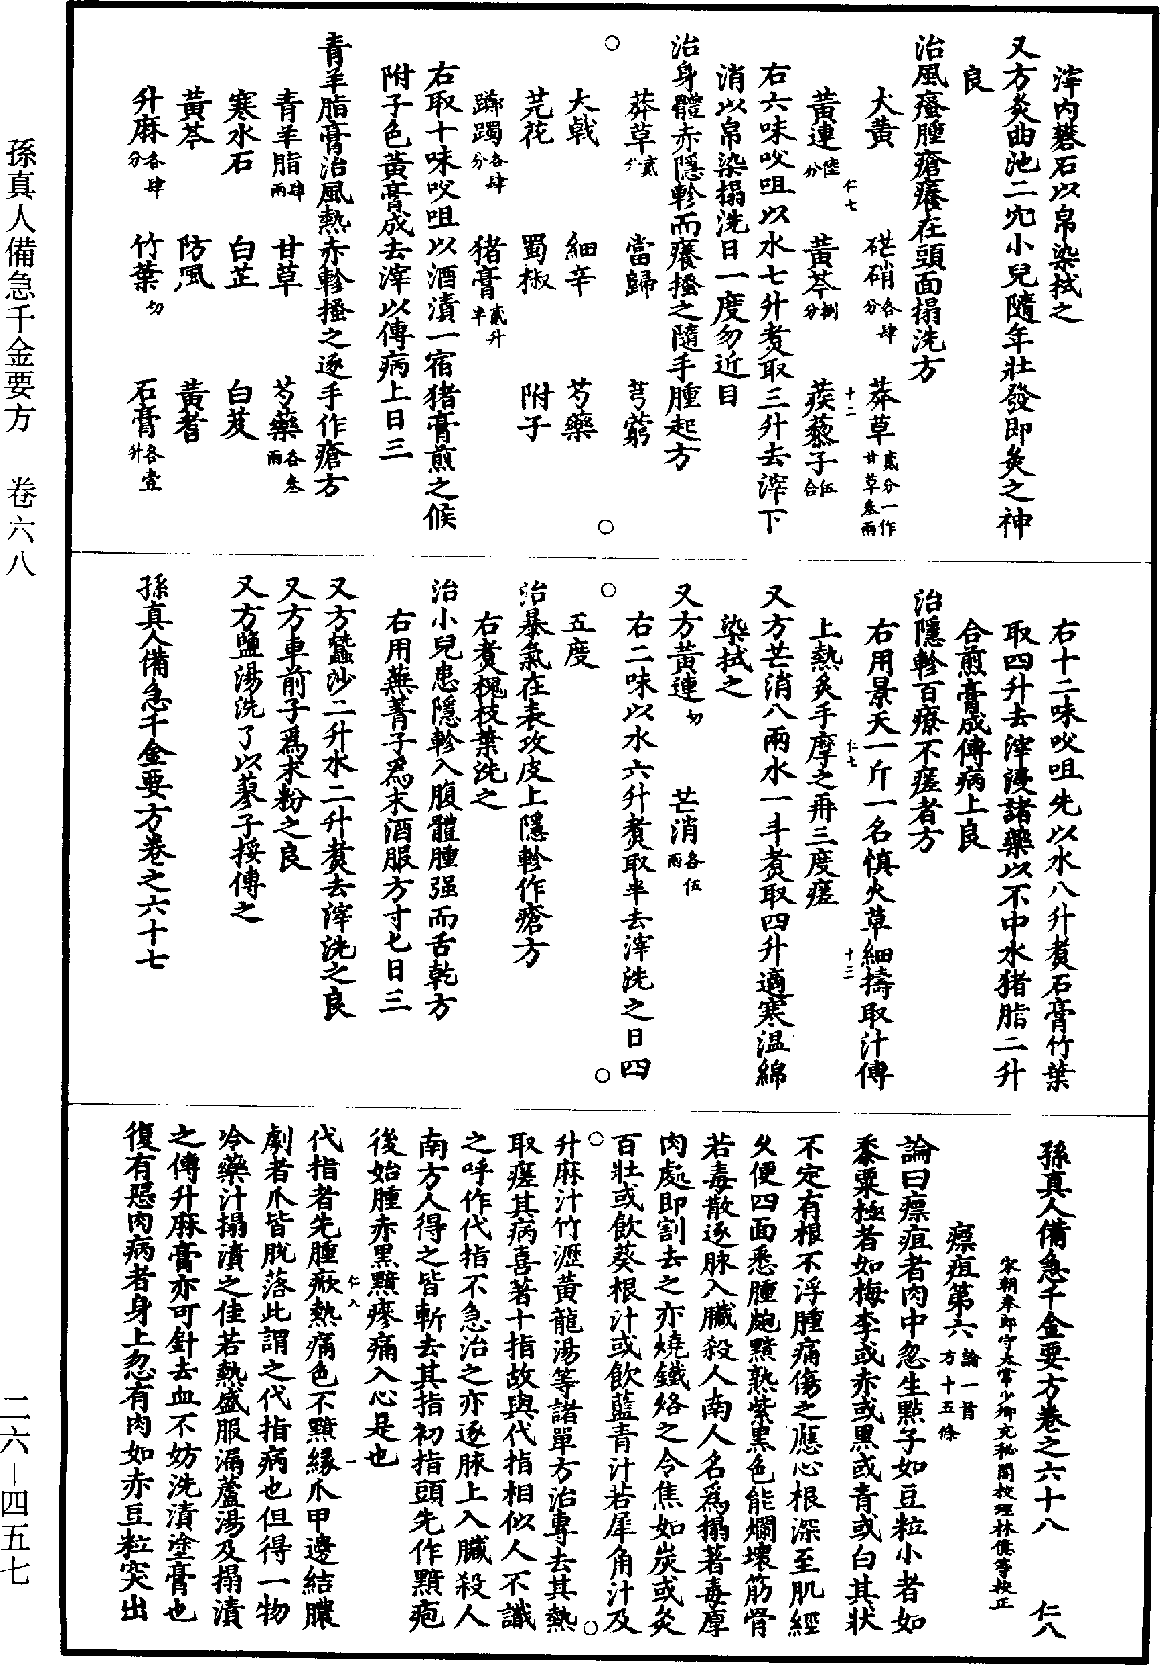 孫真人備急千金要方 卷六八
二六—四五七
滓內礬石以帛染拭之
又方灸曲池二穴小兒隨年壯發即灸之神
良
治風瘙腫瘡癢在頭面搨洗方
大黃 硭硝各肆分 莽草貳分一作甘草叁兩
黃連陸分 黃芩捌分 蒺藜子伍合
仁七 十二
右六味㕮咀以水七升煑取三升去滓下
消以帛染搨洗日一度勿近目
治身體赤隱軫而癢搔之隨手腫起方
莽草貳分 當歸 芎藭
大戟 細辛 芍藥
芫花 蜀椒 附子
躑躅各肆分 猪膏貳升半
右取十味㕮咀以酒漬一宿猪膏煎之候
附子色黃膏成去滓以傅病上日三
青羊脂膏治風熱赤軫搔之逐手作瘡方
青羊脂肆兩 甘草 芍藥各叁兩
寒水石 白芷 白芨
黃芩 防風 黃耆
升麻各肆分 竹葉切 石膏各壹升
右十二味㕮咀先以水八升煑石膏竹葉
取四升去滓浸諸藥以不中水猪脂二升
合煎膏成傅病上良
治隱軫百療不瘥者方
右用景天一斤一名慎火草細擣取汁傅
上熱灸手摩之再三度瘥
仁七 十三
又方芒消八兩水一斗煑取四升適寒温綿
染拭之
又方黃連切 芒消各伍兩
右二味以水六升煑取半去滓洗之日四
五度
治暴氣在表攻皮上隱軫作瘡方
右煑槐枝葉洗之
治小兒患隱軫入腹體腫强而舌乾方
右用蕪菁子為末酒服方寸匕日三
又方蠶沙二升水二升煑去滓洗之良
又方車前子為末粉之良
又方鹽湯洗了以蓼子挼傅之
孫真人備急千金要方卷之六十七
孫真人備急千金要方卷之六十八 仁八
宋朝奉郎守太常少卿充秘閣校理林億等校正
瘭疽第六論一首方十五條
論曰瘭疽者肉中忽生點子如豆粒小者如
黍粟極者如梅李或赤或黑或青或白其狀
不定有根不浮腫痛傷之應心根深至肌經
久便四面悉腫皰黯熟紫黑色能爛壞筋骨
若毒散逐脉入臟殺人南人名為搨著毒厚
肉處即割去之亦燒鐵烙之令焦如炭或灸
百壯或飲葵根汁或飲藍青汁若犀角汁及
升麻汁竹瀝黃龍湯等諸單方治專去其熱
取瘥其病喜著十指故與代指相似人不識
之呼作代指不急治之亦逐脉上入臟殺人
南方人得之皆斬去其指初指頭先作黯疱
後始腫赤黑黯瘮痛入心是也
仁八 一
代指者先腫焮熱痛色不黯緣爪甲邊結膿
劇者爪皆脫落此謂之代指病也但得一物
冷藥汁搨漬之佳若熱盛服漏蘆湯及搨漬
之傅升麻膏亦可針去血不妨洗漬塗膏也
復有惡肉病者身上忽有肉如赤豆粒突出